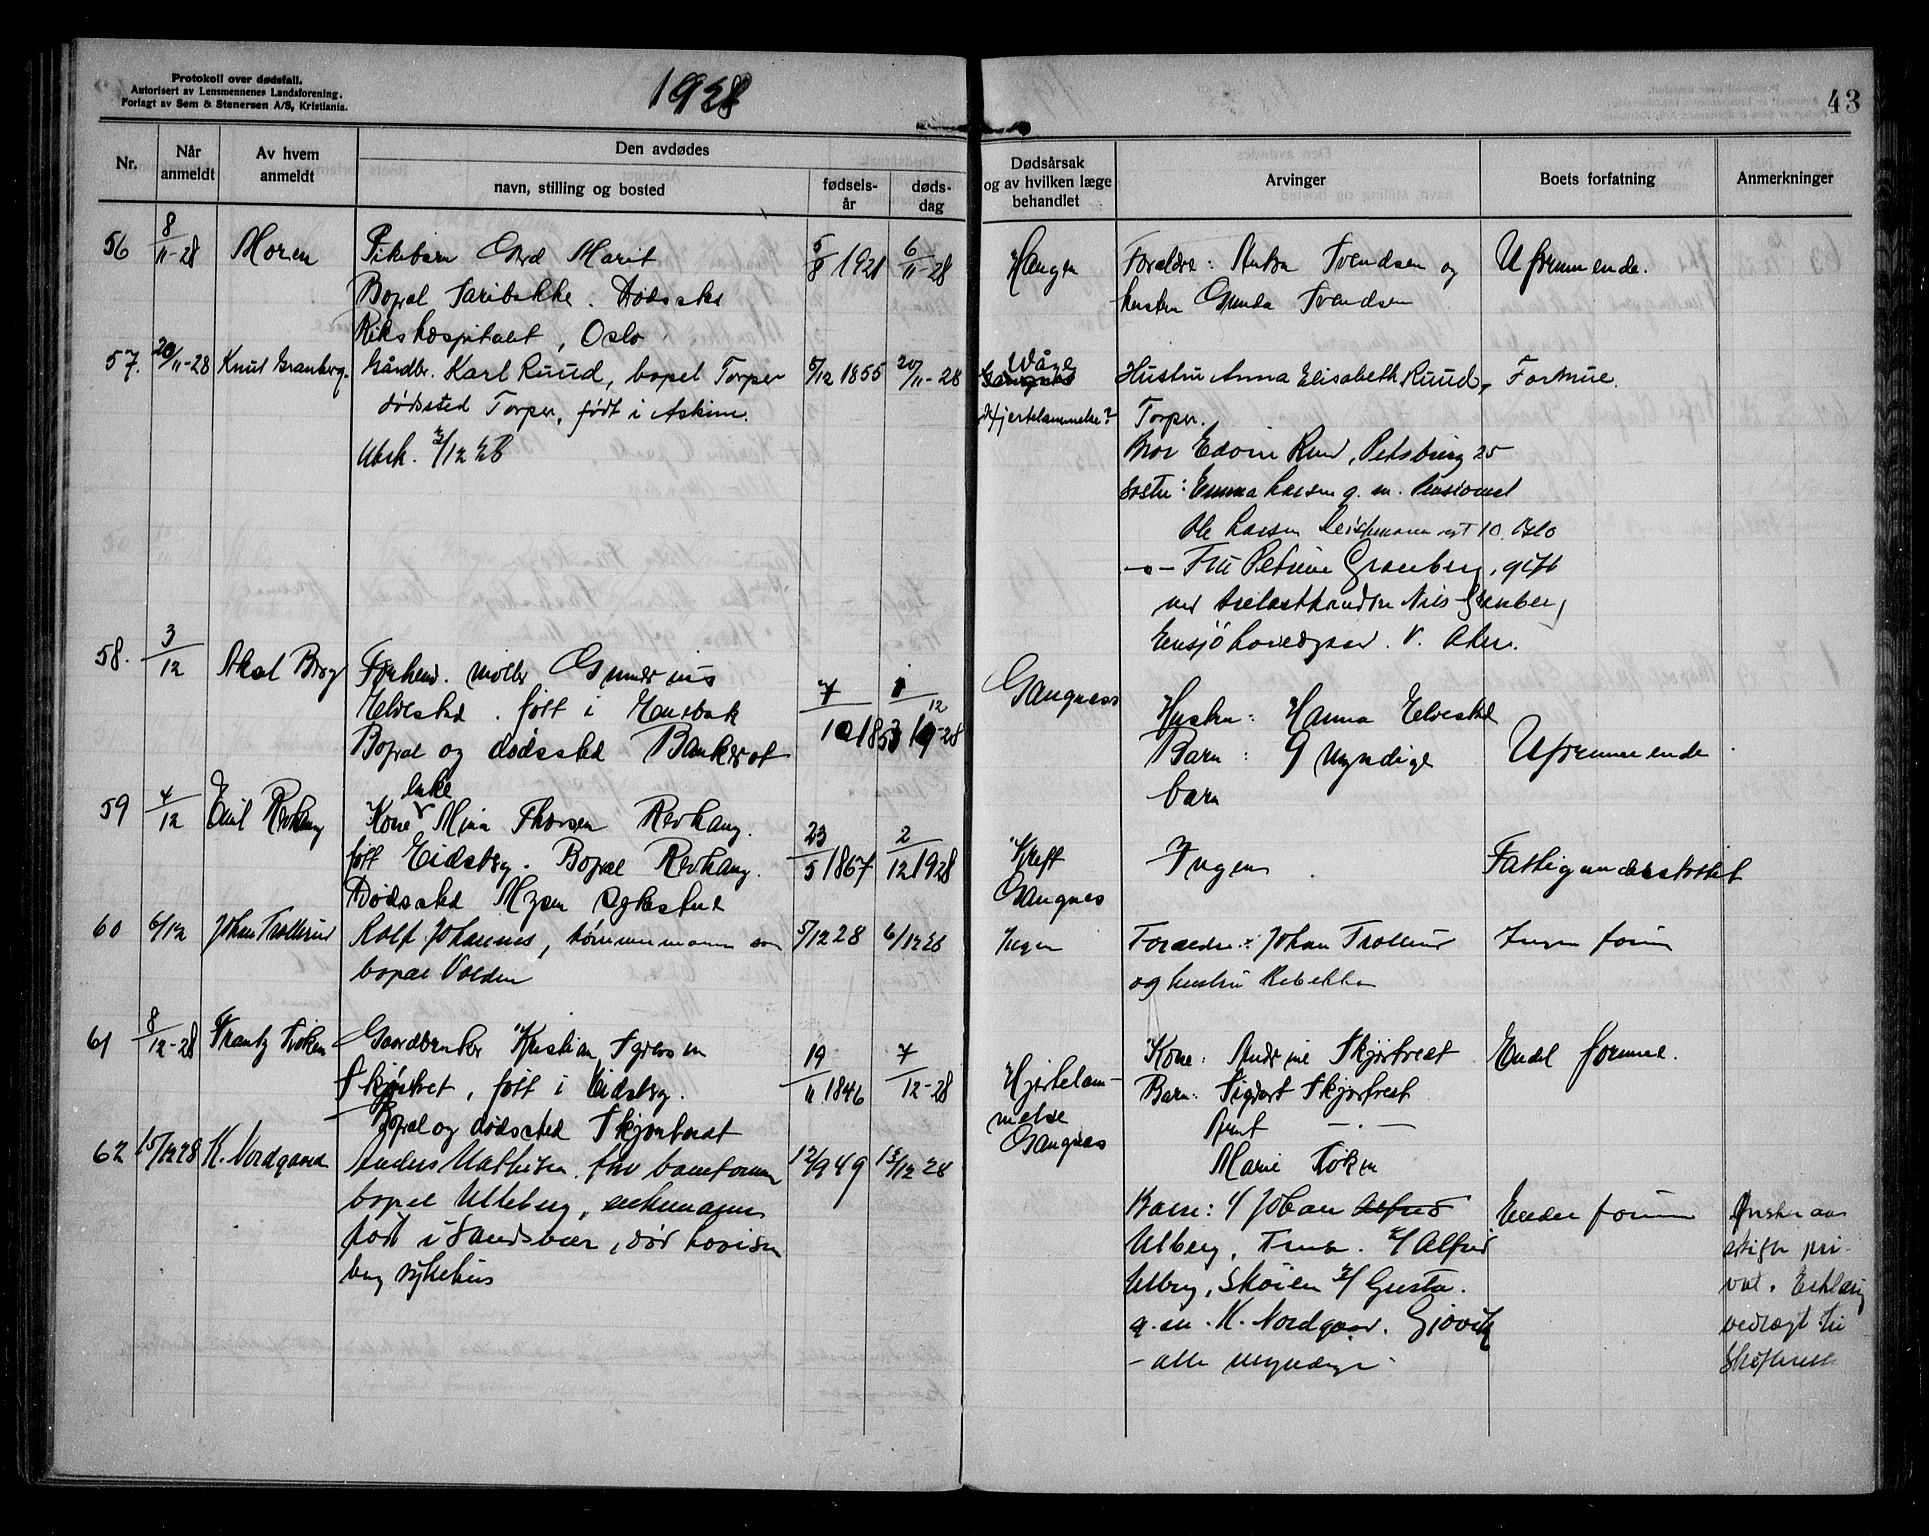 Protokoll over dødsfall.
Autorisert av Lensmennenes Landsforening.
Forlagt av Sem & Stenersen A/S, Kristiania.
1928
43
Nr.
Når anmeldt
Av hvem anmeldt
Den avdødes
navn, stilling og bosted
fødsels-år
døds-dag
Dødsårsak og av hvilken læge behandlet
Arvinger
Boets forfatning
Anmerkninger
56 8/11-28 Moren
Pikebarn Gerd Marit
Bopæl Saribakke. Dødssted
Rikshospitalet, Oslo
5/8 1921 6/11-28
Haugen
Foreldre: Anton Svendsen og
hustru Gunda Svendsen
Uformuende.
57. 20/11-28 Knut Granberg.
Gårdbr. Karl Ruud, bopel Torper
dødssted Torper, født i Askim.
Utsk. 3/12 28
5/12 1855 20/11-28
Wåge
Hjertelammelse?
Hustru Anna Elisabeth Ruud,
Torper.
Bror Edvin Ruud, Petsburg 25
Søster: Emma Larsen g. m. Pensionist
Ole Larsen 10. Oslo
-"- Fru Petrine Granberg, gift
med trelasthandler Nils Granberg
Ensjø V. Aker.
Formue.
58. 3/12 Aksel Berg
Forhenv. møller Gunerius
Elvestad. født i Enebak
Bopæl og dødssted
7/10 1853 1/12 1928
Gangnes
Hustru: Hanna Elvestad
Barn: 9 myndige
barn
Uformuende
59 4/12 Emil Revhaug
Kone enke Mina Thorsen Revhaug.
født Eidsberg. Bopæl Revhaug.
Dødssted Mysen sykestue
23/5 1867 2/12 1928
Kreft
Gangnes
Ingen
Fattigunderstøttet
60 6/12 Johan Trollerud
Rolf Johannes, tømmermann søn
bopæl Volden
5/12 28 6/12 28
Ingen
Foreldre: Johan Trollerud
og hustru Rebekka
Ingen form
61 8/12-28 Frantz Løken
Gaardbruker Kristian Syversen
født i Eidsberg.
Bopæl og dødssted Skjørtvedt
19/11 1846 7/12-28
Hjertelam-
melse
Gangnes
Kone: Andrine Skjørtvedt
Barn: Sigvart Skjørtvedt
-"-
Marie Løken
Endel formue.
62 15/12 28 K. Nordgaard
Anders Mathisen. fhv
bopel Ulleberg, enkemann
født i Sandsvær, død Lovisen
berg sykehus
12/9 49 13/12 28
Barn: 1/ Johan Alfred
Ulberg, 2/ Alfred
Ulberg, Skøien 3/ Gusta.
g. m. K. Nordgaard. Gjøvik
- alle myndige
Endel formue
Ønsker aa
skifte pri-
vat. Erklæring
vedlagt til
Skifterett